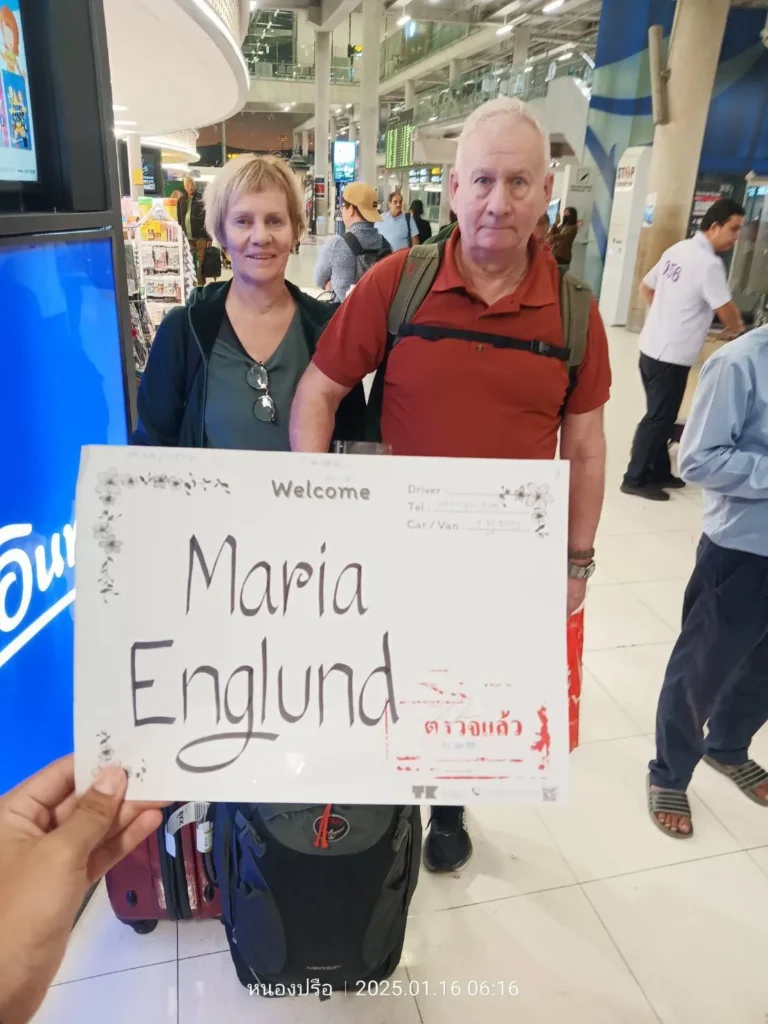 Welcome
Driver :
Tel :
Car / Van :
Maria
Englund
ตรวจแล้ว
TK
STOP
หนองปรือ | 2025.01.16 06:16